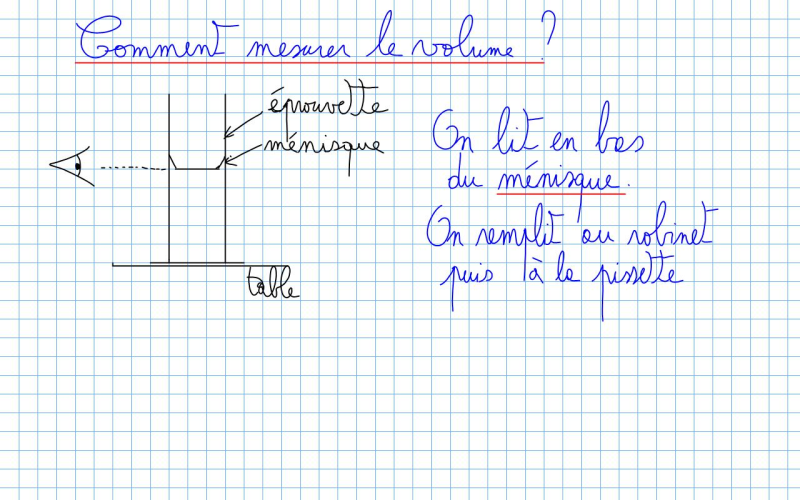 Comment mesurer le volume ?
éprouvette
ménisque
table
On lit en bas
du ménisque.
On remplit au robinet
puis à la pissette